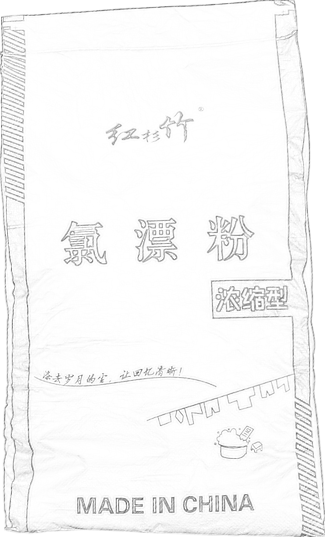 红杉竹
氯漂粉
浓缩型
洗去岁月的尘，让回忆清晰！
MADE IN CHINA